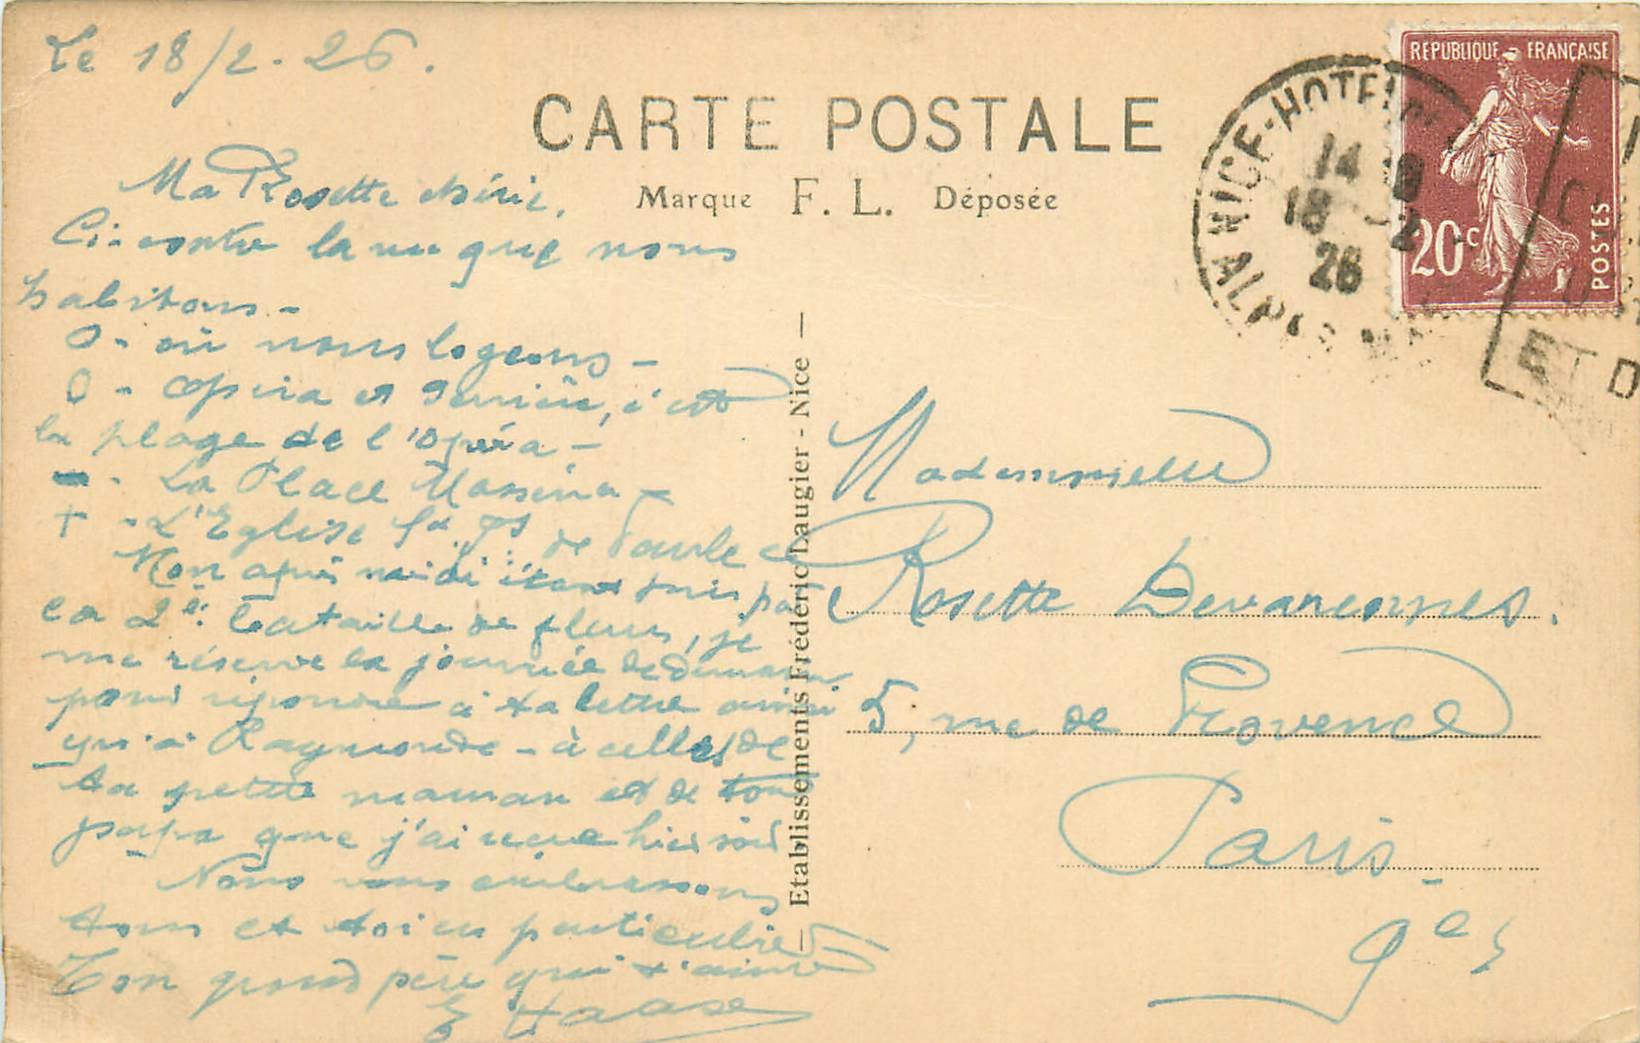 Le 18/2-26.
CARTE POSTALE
Marque F. L. Déposée
Ma Rosette chérie,
Ci-contre la vue que nous
habitons -
O - où nous logeons -
0 - Opéra et derrière, c'est
la plage de l'Opéra -
- La Place Masséna -
+ - L'Eglise St de Paule
Mon après midi étant pris par
la 2e bataille de fleurs, je
me réserve la journée de demain
pour répondre à ta lettre ainsi
qu'à Raymonde - à celles de
ta petite maman et de ton
papa que j'ai reçue hier soir
Nous vous embrassons
tous et toi en particulier
Ton grand père qui t'aime
E Haase
Etablissements Frédéric Laugier - Nice
REPUBLIQUE FRANÇAISE
20c
POSTES
NICE-HOTEL
ALPES M
14
18 -2
26
ET D
Mademoiselle
Rosette Devarennes.
5, rue de Provence
Paris -
9e